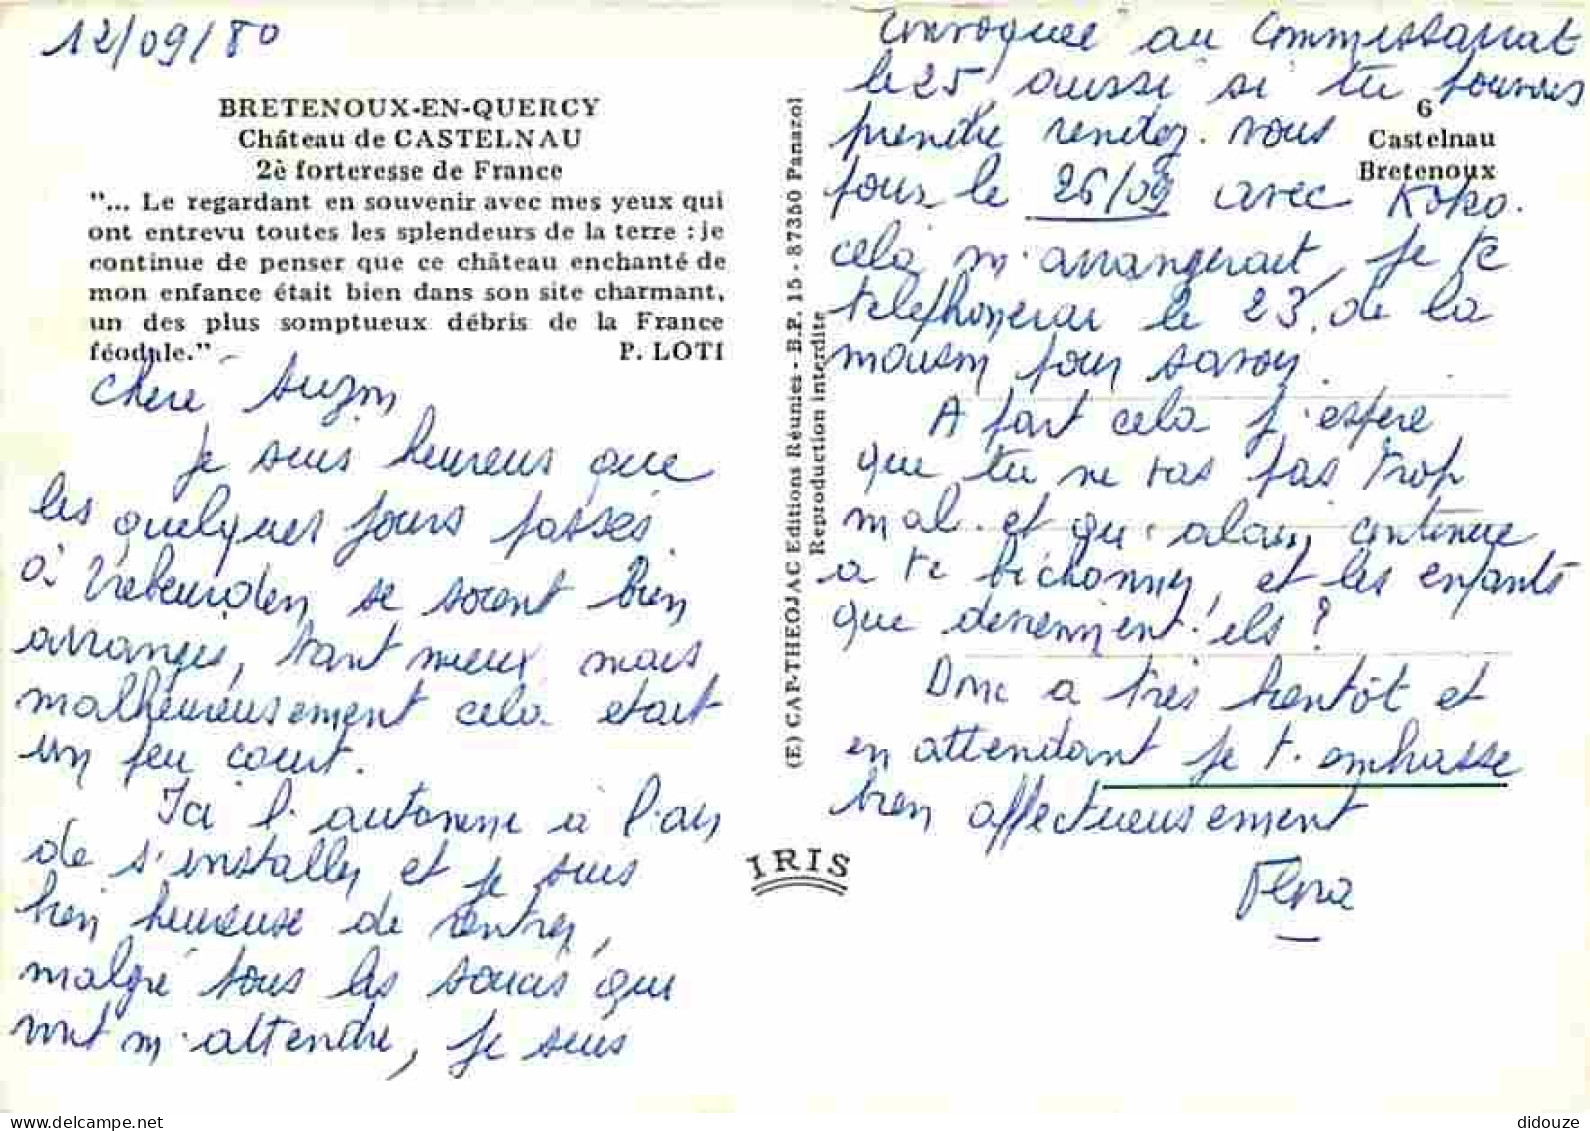 12/09/80
BRETENOUX-EN-QUERCY
Château de CASTELNAU
2è forteresse de France
"... Le regardant en souvenir avec mes yeux qui
ont entrevu toutes les splendeurs de la terre : je
continue de penser que ce château enchanté de
mon enfance était bien dans son site charmant,
un des plus somptueux débris de la France
féodale."
P. LOTI
chère Suzon
Je suis heureus que
les quelques jours passés
à Trebeurden se soient bien
arrangés, tant mieux mais
malheureusement cela etait
un peu court.
Ici l'automne à l'air
de s'installer et je suis
bien heureuse de rentrer,
malgré tous les soucis qui
vont m'attendre, je suis
(E) CAP-THEOJAC Editions Réunies - B.P. 15 - 87350 Panazol
Reproduction interdite
IRIS
6
Castelnau
Bretenoux
Convoquée au Commissariat
le 25 aussi si tu pouvais
prendre rendez-vous
pour le 26/09 avec Koko.
cela m'arrangerait, je te
telephonerai le 23, de la
maison pour savoir.
A part cela j'espere
que tu ne vas pas trop
mal. et qu'alain continue
a te bichonner, et les enfants
que deviennent-ils ?
Donc a très bientôt et
en attendant je t'embrasse
bien affectueusement